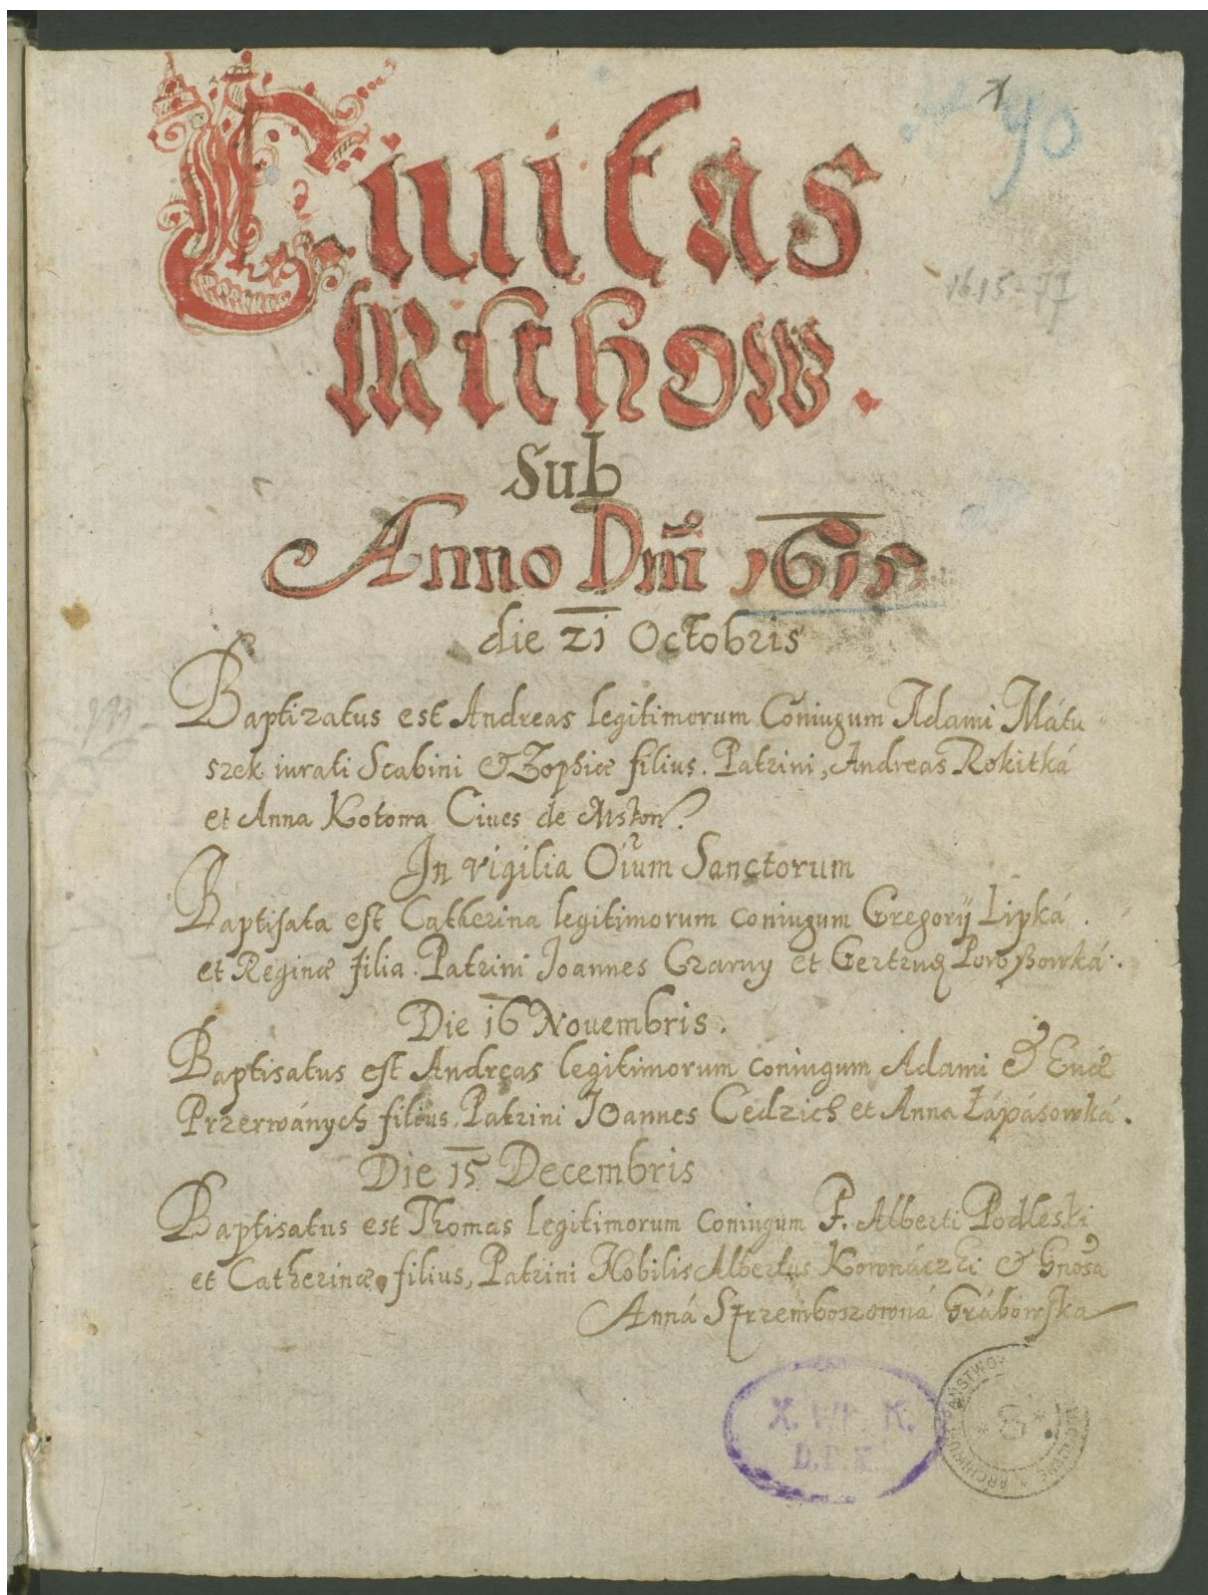 Ciuitas
Michow.
90
1615-77
Sub
Anno Dnı 1615
die 21 Octobris
Baptizatus est Andreas legitimorum Coniugum Adami Mátu
szek iurati Scabini & Zophiæ filius. Patrini, Andreas Rokitká
et Anna Kotowa Ciues de
In vigilia Oium Sanctorum
Baptisata est Catherina legitimorum coniugum Gregorij Lipká
et Reginæ filia. Patrini Joannes Czarny et Gertrud
Die 16 Nouembris.
Baptisatus est Andreas legitimorum coniugum Adami & Euæ
Przerwánych filius. Patrini Joannes Cedzich et Anna Łápásowká.
Die 15 Decembris
Baptisatus est Thomas Legitimorum coniugum P. Alberti Podleski
et Catherinæ filius, Patrini Nobilis Albertus Kownáczki & Gnosa
Anná Strzemboszowná Grábowska